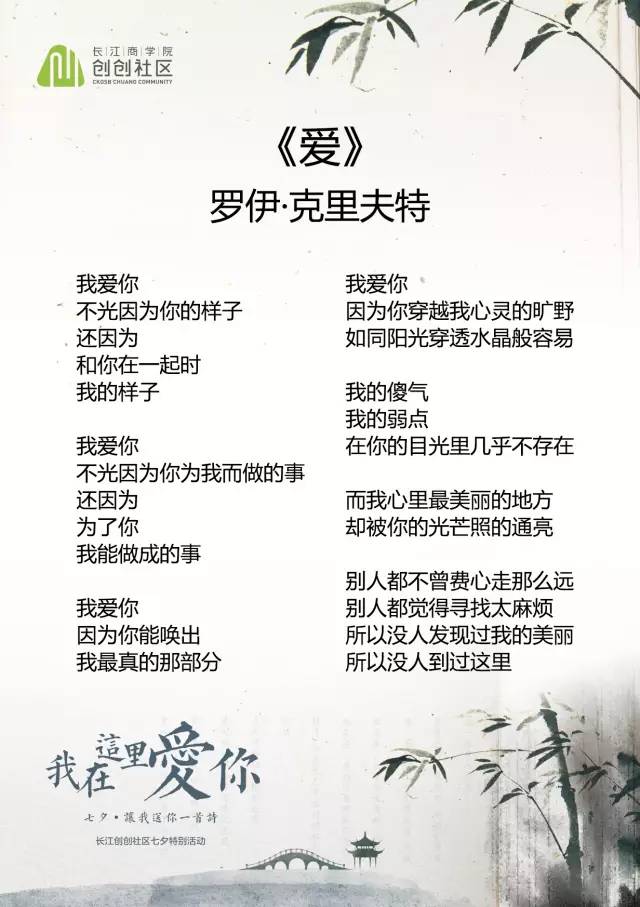 长江商学院
创创社区
CKGSB CHUANG COMMUNITY
《爱》
罗伊·克里夫特
我爱你
不光因为你的样子
还因为
和你在一起时
我的样子
我爱你
不光因为你为我而做的事
还因为
为了你
我能做成的事
我爱你
因为你能唤出
我最真的那部分
我爱你
因为你穿越我心灵的旷野
如同阳光穿透水晶般容易
我的傻气
我的弱点
在你的目光里几乎不存在
而我心里最美丽的地方
却被你的光芒照的通亮
别人都不曾费心走那么远
别人都觉得寻找太麻烦
所以没人发现过我的美丽
所以没人到过这里
我在這里愛你
七夕·讓我送你一首詩
长江创创社区七夕特别活动